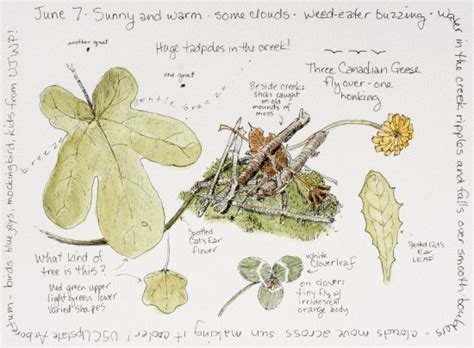 June 7 · Sunny and warm · some clouds · weed-eater buzzing · water in the creek ripples and falls over smooth boulders - clouds move across sun making it cooler! USC Upstate Arboretum - birds: blue jays, mockingbird, kids from UJWP!
another gnat
Huge tadpoles in the creek!
one gnat
gentle breeze
breeze
Beside creek:
sticks caught
on old
mounds of
moss
Three Canadian Geese
fly over - one
honking
Spotted
Cat's Ear
flower
Spotted Cat's
Ear
LEAF
What kind of
tree is this?
Med green upper
light green lower
varied shapes
White
Cloverleaf
on clover:
tiny fly w/
irridescent
orange body